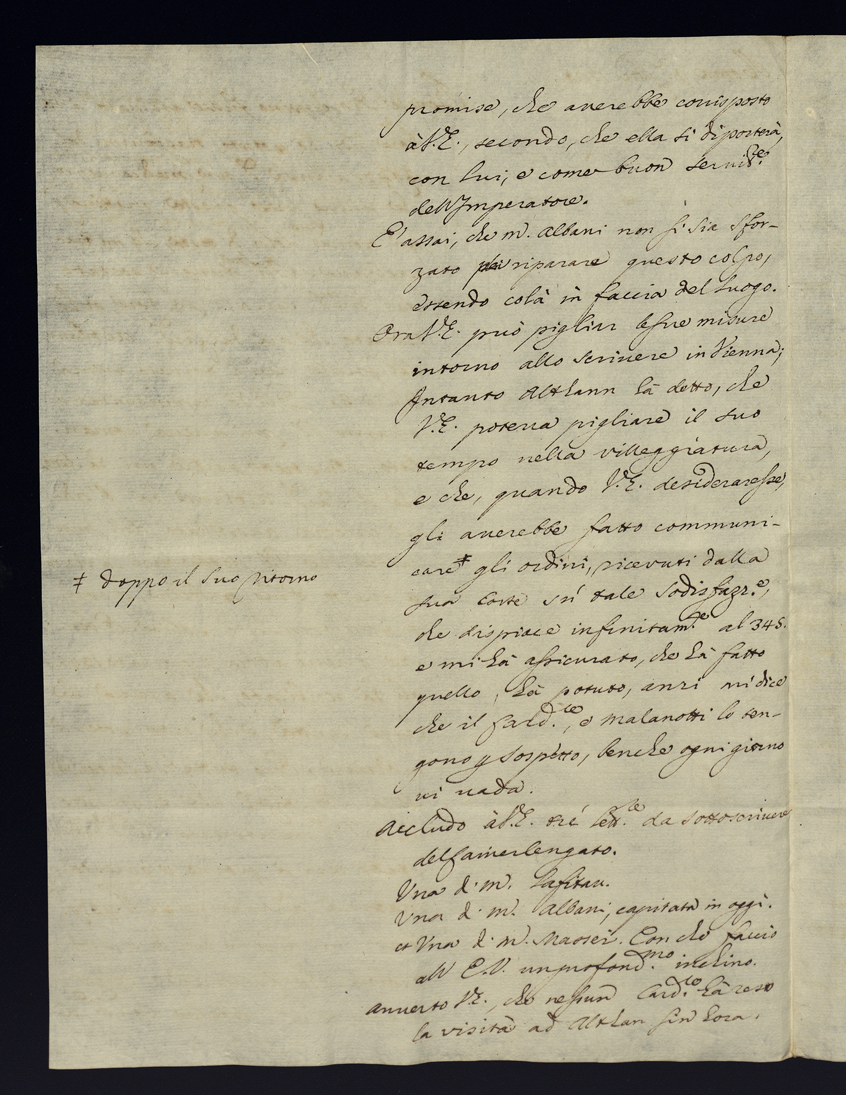 promise, che auerebbe corrisposto
à V.E., secondo, che ella si diporterà,
con lui, e come buon seruit.re
dell'Imperatore.
E' assai, che m.r Albani non si sia sfor-
zato riparare questo colpo,
essendo colà in faccia del luogo.
Ora V.E. può pigliar le sue misure
intorno allo scriuere in Vienna;
Intanto Althann hà detto, che
V.E. poteua pigliare il suo
tempo nella villeggiatura,
e che, quando V.E. desiderasse,
gli auerebbe fatto communi-
care ‡ gli ordini, riceuuti dalla
‡ doppo il suo ritorno
sua Corte sù tale sodisfaz.e,
che dispiace infinitam.e al 345.
e mi hà assicurato, che hà fatto
quello, hà potuto, anzi mi dice
che il Card.le, e Malanotti lo ten-
gono p sospetto, benche ogni giorno
ui uada.
Accludo à V.E. trè lett.e da sottoscriuere
del Camerlengato.
Vna d. m.r Lafitau.
Vna d. m.r Albani, capitata in oggi.
et Vna d. m.r Maosei. Con che faccio
all' E.V. un profond.mo inchino.
auuerto V.E., che nessun Card.le hà reso
la visita ad Althan sin hora.